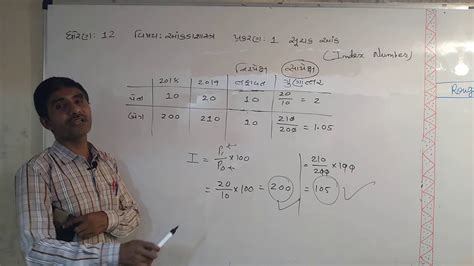 ધોરણ: 12 વિષય: આંકડાશાસ્ત્ર પ્રકરણ: 1 સૂચક આંક
(Index Number)
(નિરપેક્ષ) (સાપેક્ષ)
2018 2019 તફાવત ગુણોત્તર
પેન 10 20 10 20/10 = 2
200 210 10 210/200 = 1.05
I = P₁/P₀ × 100
= 210/200 × 100
= 20/10 × 100 = 200
= 105